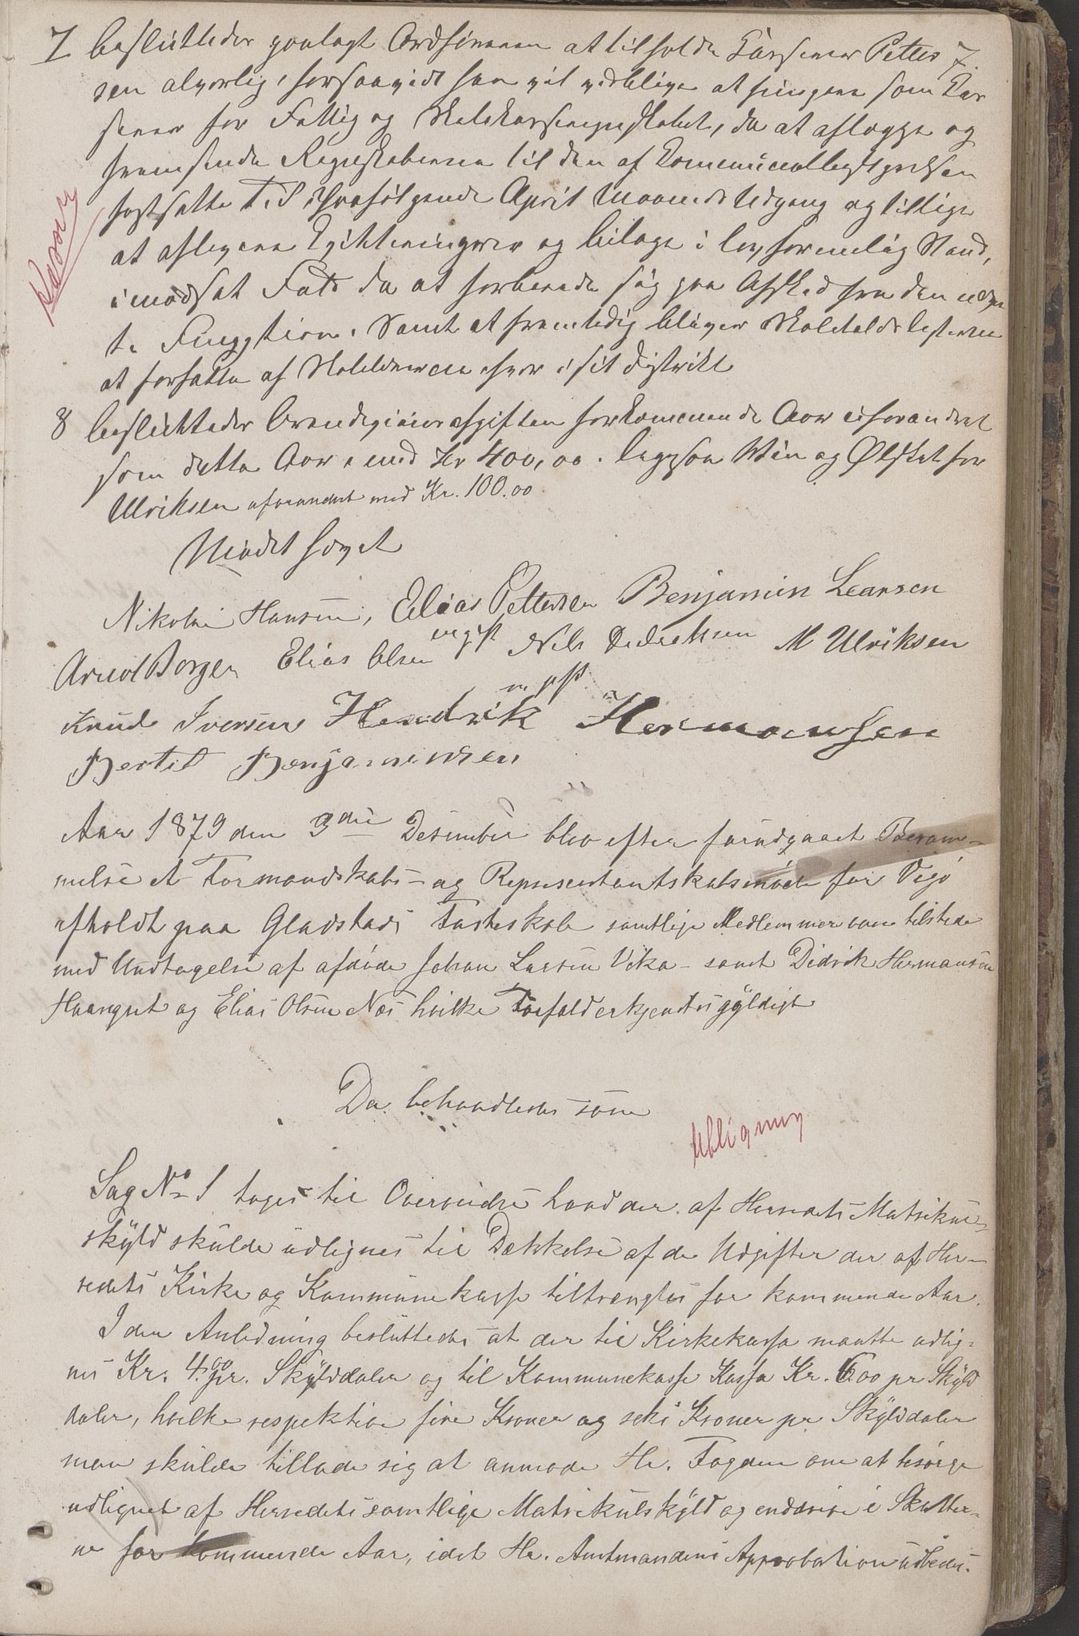 7 besluttedes paalagt Ordføreren at tilholde Kasserer Petter 7.
sen alvorlig, forsaavidt han vil vedblive at fungere som Kas
serer for Fattig og Skolekasseregnskabet, da at aflægge og
fremsende Regnskaberne til den af Kommunebestyrelsen
fastsatte Tid paafølgende April Maaneds Udgang og tillige
at aflevere Qvitteringer og bilage i lovformelig Stand,
Kasserer
imodsat Fald da at forberede sig paa Afsked fra den nævn
te Fungtion. Samt at fremtidig bliver Skoleholdslisterne
at forfatte af Skolelærerne hver i sit Distrikt
8 besluttedes Brændevinsafgiften forkommende Aar uforandret
som dette Aar med Kr 400,00. ligesaa Vin og Ølskat for
Ulriksen uforandret med Kr. 100.00
Mødet hævet
Nikolai Hansen, Elias Pettersen Benjamin Learsen
Arnol Borgen Elias Olsen m p P Nils Dedreksen M Ulriksen
m p P
Knud Iversen Hendrik Hermansen
Bertil Benjaminsen
Aar 1879 den 3die Desember blev efter forudgaaet Beram-
melse et Formandskabs- og Representantskabsmøde for Vegø
afholdt paa Gladstads Fasteskole samtlige Medlemmer vare tilstede
med Undtagelse af afdøde Johan Larsen Vika - samt Didrik Hermansen
og Elias Olsen Nes hvilke Forfald erkjendtes gyldigt
Da behandledes som
Udligning
Sag No 1 toges til Overveielse hvad der af Herredets Matrikul-
skyld skulde udlignes til Dækkelse af de Udgifter der af Her-
redets Kirke og Kommunekasse tiltrængtes for kommende Aar.
I den Anledning besluttedes at der til Kirkekassa maatte udlig-
nes Kr. 4.00 pr. Skylddaler og til Kommunekasse Kassa Kr. 6.00 pr Skyld
daler, hvilke respektive fire Kroner og seks Kroner pr Skylddaler
man skulde tillade sig at anmode Hr. Fogden om at besørge
udlignet af Herredets samtlige Matrikulskyld og endvise i Skatter-
ne for kommende Aar, idet Hr. Amtmandens Approbation udbedes.